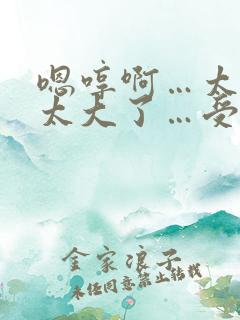 嗯哼啊…太
太大了…受
金家浪子
未经同意禁止转载